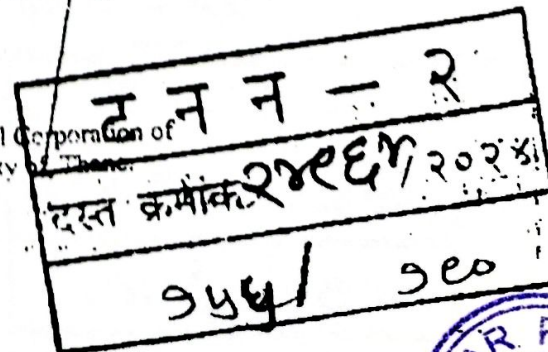 l Corporation of
y of Thane.
ट न न - २
दस्त क्रमांक २४९६४/ २०२४
१५६/ १९०